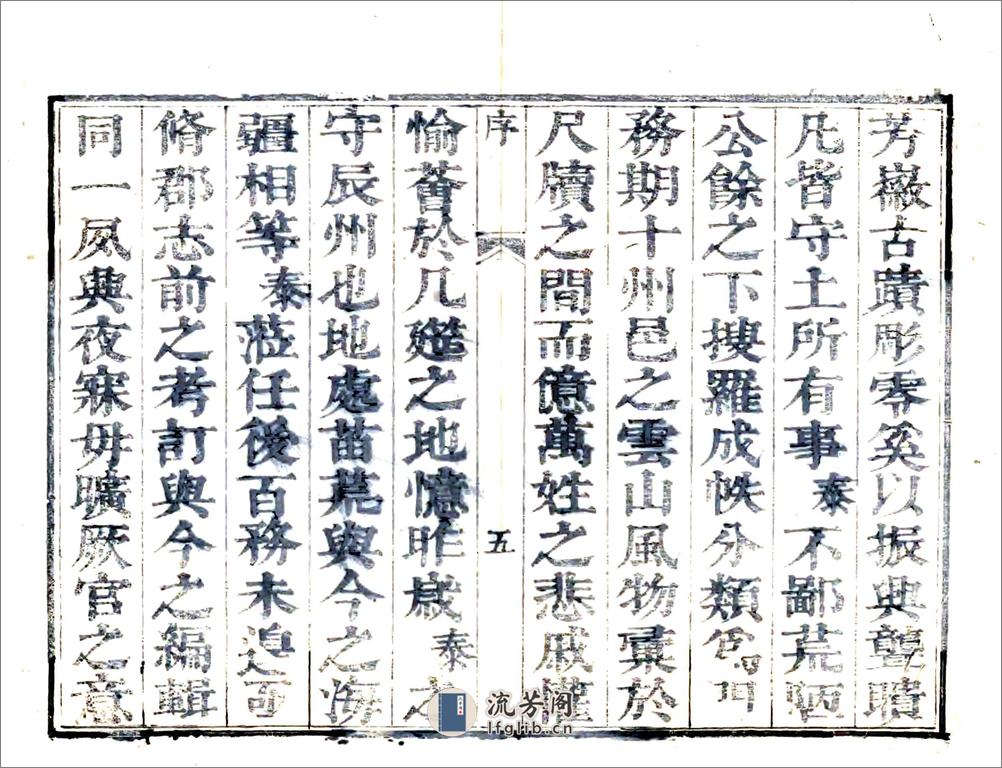 芳巖古蹟彫零奚以振典聾聵
凡皆守土所有事泰不鄙荒陋
公餘之下捜羅成帙分類爲門
務期十州邑之雲山風物彚於
尺牘之間而億萬姓之悲戚
序 五
愉薈於几筵之地憶昨歲泰之
守辰州也地處苗荒與今之海
疆相等泰蒞任後百務未遑即
脩郡志前之考訂與今之編輯
同一夙興夜寐毋曠厥官之意
流芳閣
lfglib.cn